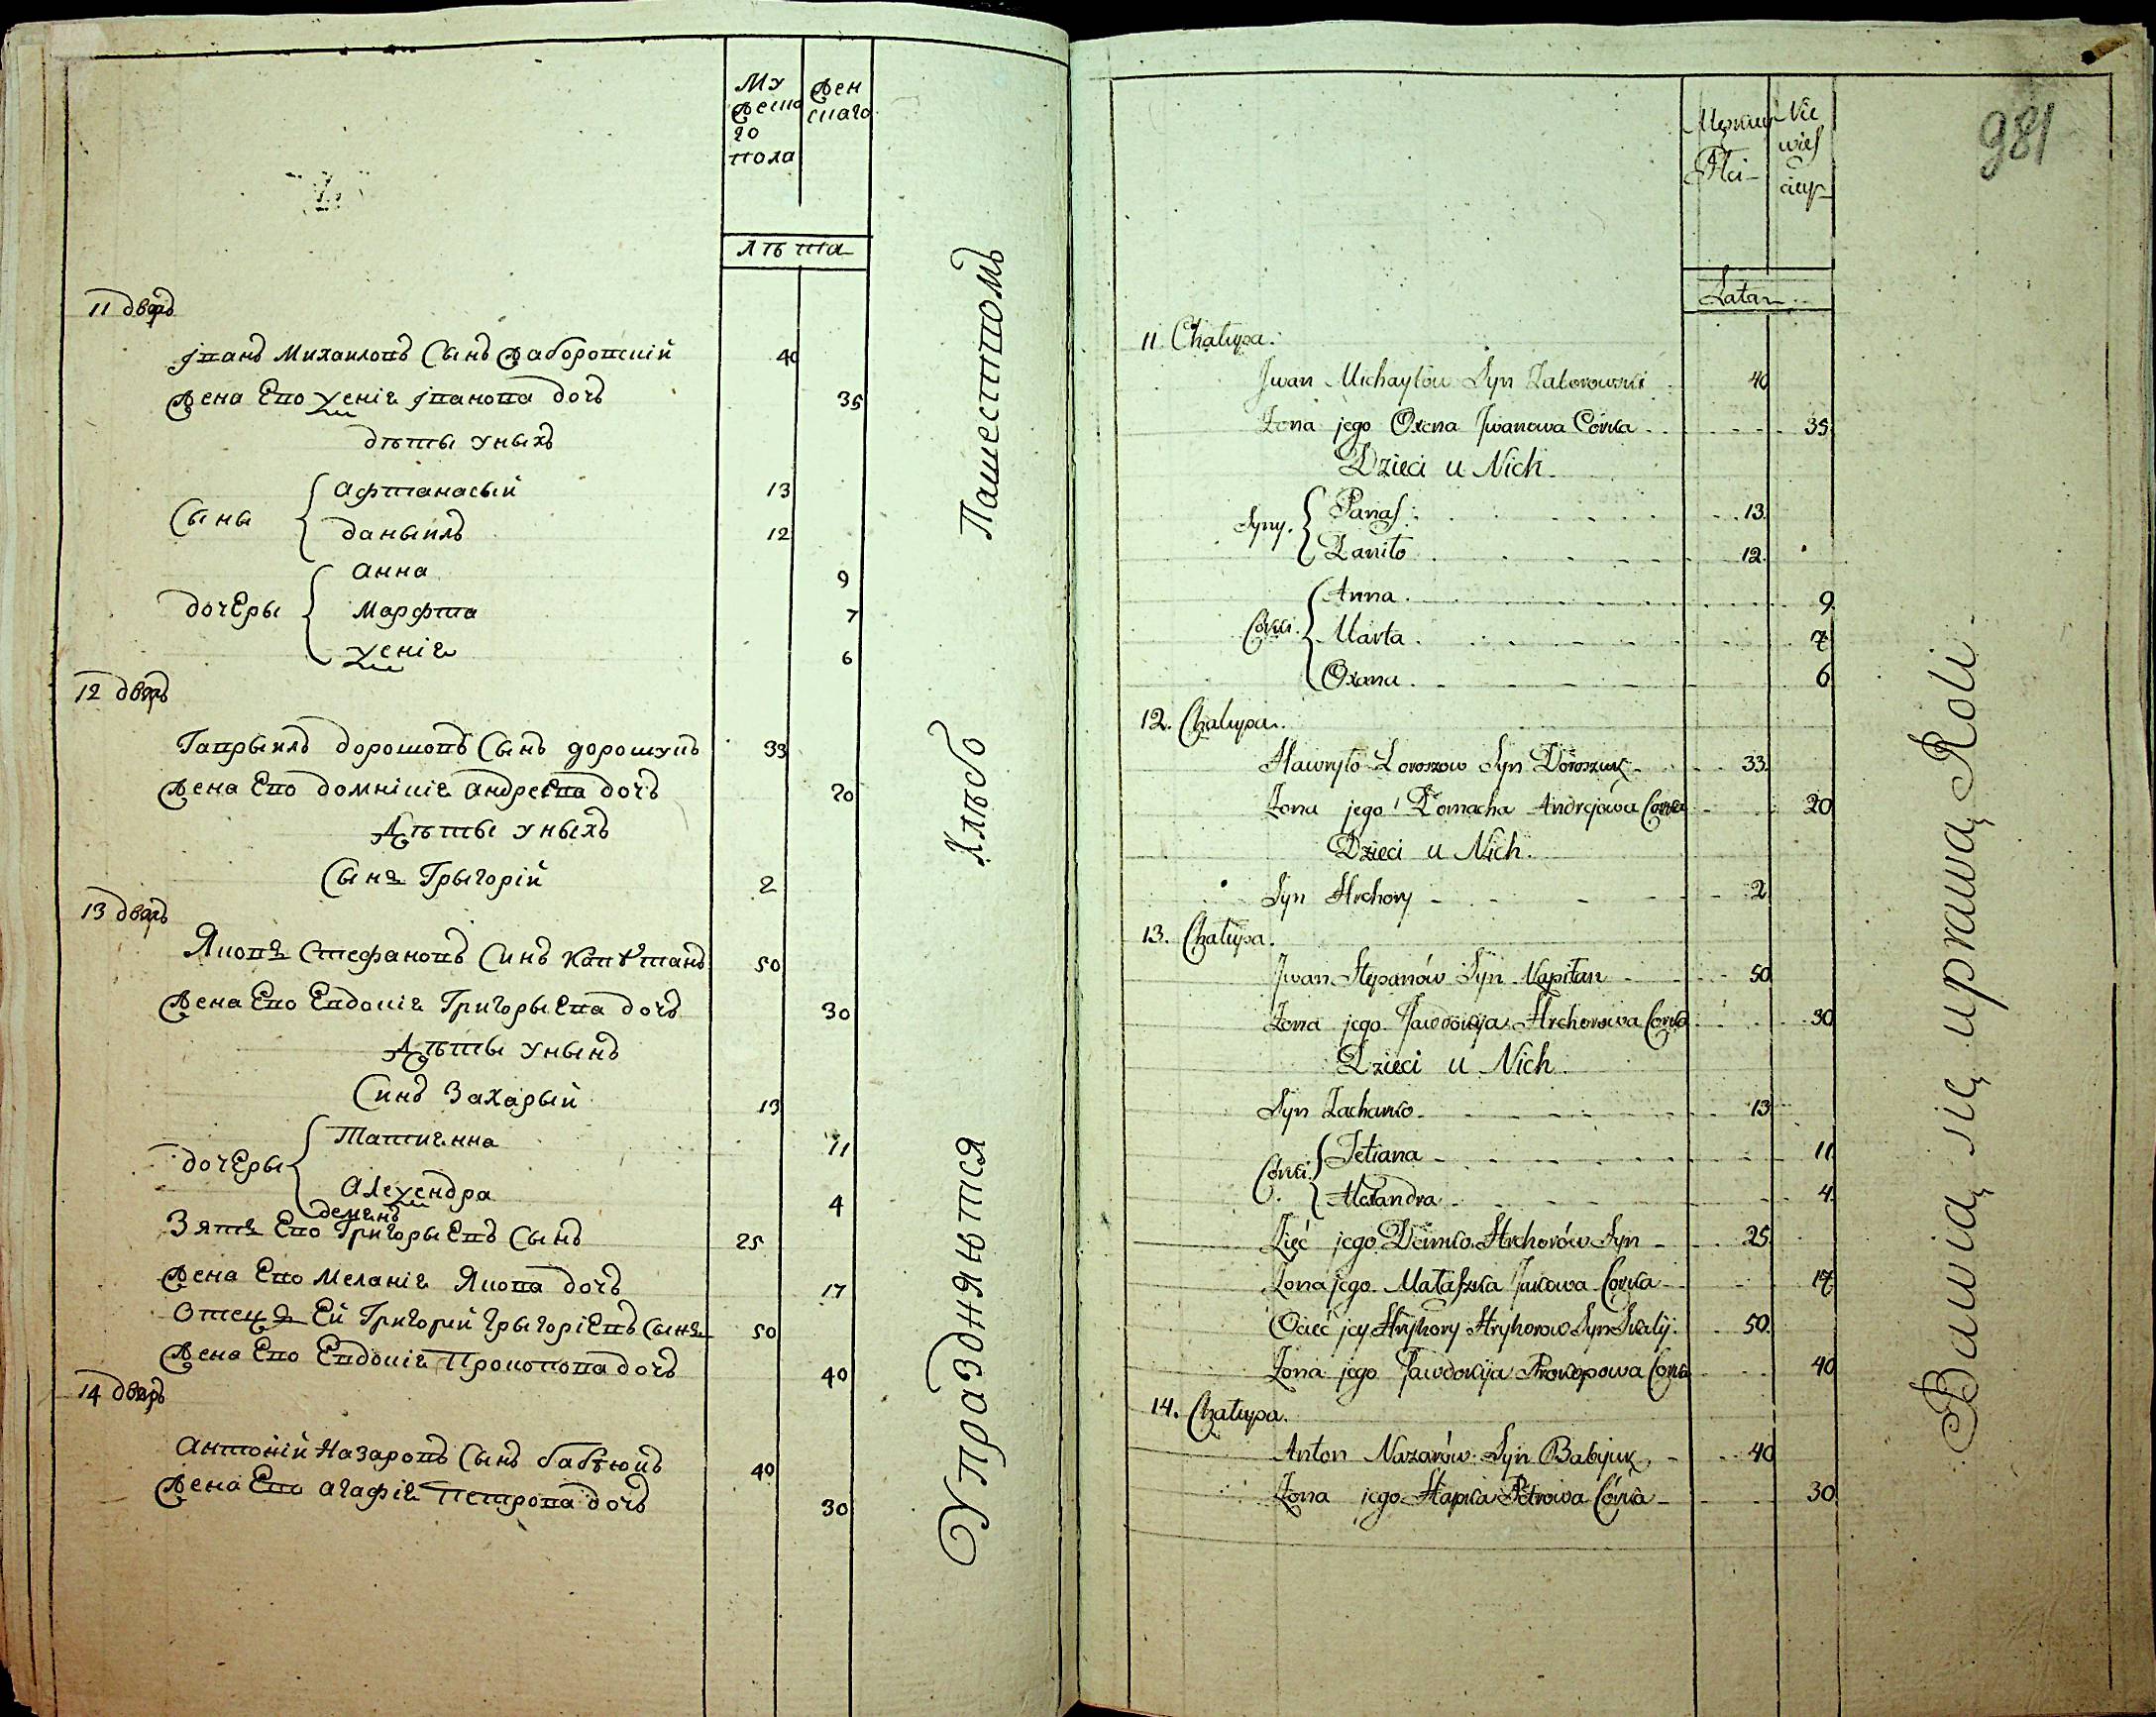 Му
жеска
го
пола
жен
скаго
лѣта
11 дворъ
Іванъ Михаиловъ Сынъ Жаборовскій 40
Жена Ево Ѯеніа Іванова дочь 35
дѣты уныхъ
Сыны
Афтанасый 13
даныилъ 12
дочЕры
Анна 9
Марфта 7
Ѯеніа 6
12 дворъ
Гаврыилъ дорошовъ Сынъ дорошукъ 33
Жена Ево домнікіа андреЕва дочь 20
Дѣты уныхъ
Сынъ Грыгорій 2
13 дворъ
Яковъ Стефановъ Синъ Капѣтанъ 50
Жена Ево Евдокіа ГригорыЕва дочь 30
Дѣты уныхъ
Синъ Захарый 13
дочЕры
Татианна 11
АлеѮендра 4
деминъ
Зять Ево ГригорыЕвъ Сынъ 25
Жена Ево Меланіа Якова дочь 17
Отецъ Ей Григорий ГрыгоріЕвъ Сынъ 50
Жена Ево Евдокіа Прокопова дочь 40
14 дворъ
Антоній Назаровъ Сынъ бабѣюкъ 40
Жена Ево агафіа Петрова дочь 30
Упраздняются
Хлѣбо
Пашествомъ
981
Męzkiey
Płci
Nie
wieś
ciey
Lata
11. Chałupa.
Jwan Michayłów Syn Zaborowski 40
Żona jego Oxena Jwanowa Córka 35
Dzieci u Nich
Syny.
Panas 13.
Daniło 12.
Córki.
Anna 9.
Marta 7
Oxana 6
12. Chałupa.
Hawryło Doroszow Syn Doroszuk 33.
Żona jego Domacha Andrejowa Corka 20
Dzieci u Nich.
Syn Hrehory 2
13. Chałupa.
Jwan Stepanów Syn Kapitan 50
Żona jego Jawdokija Hrehorowa Corka 30
Dzieci u Nich
Syn Zacharko 13
Córki
Tetiana 11
Alexandra 4.
Zięć jego Demko Hrehorów Syn 25.
Żona jego Małaszka Jakowa Corka 17
Ociec jey Hryhory Hryhorow Syn 50.
Żona jego Jawdokija Prokopowa Corka 40
14. Chałupa.
Anton Nazarów Syn Babijuk 40
Żona jego Hapka Petrowa Córka 30
Bawią się uprawą Roli